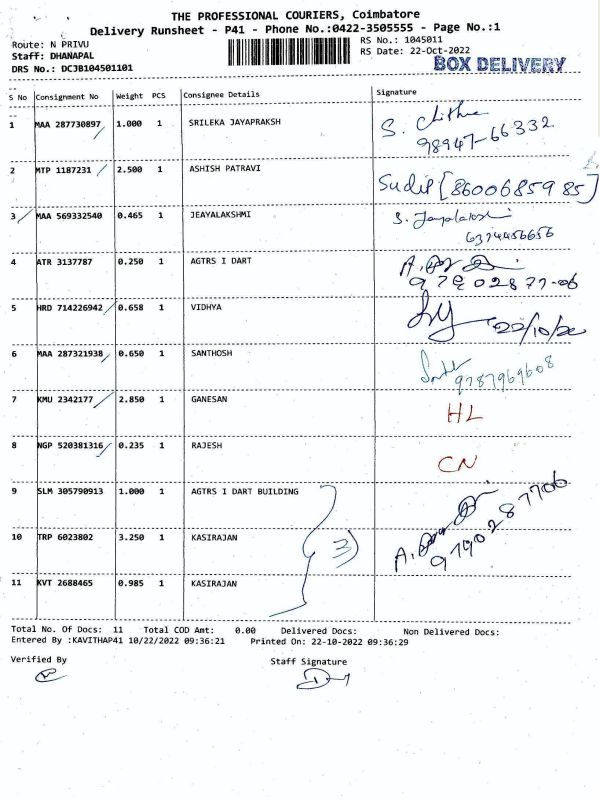 THE PROFESSIONAL COURIERS, Coimbatore
Delivery Runsheet - P41 - Phone No.:0422-3505555 - Page No.:1
Route: N PRIVU
RS No.: 1045011
Staff: DHANAPAL
RS Date: 22-Oct-2022
DRS No.: DCJB104501101
BOX DELIVERY
S No Consignment No Weight PCS Consignee Details Signature
1 MAA 287730897 1.000 1 SRILEKA JAYAPRAKSH S.
98947-66332
2 MTP 1187231 2.500 1 ASHISH PATRAVI Sudip [8600685985]
3 MAA 569332540 0.465 1 JEAYALAKSHMI S.
6374456656
4 ATR 3137787 0.250 1 AGTRS I DART A.
97902877-06
5 HRD 714226942 0.658 1 VIDHYA
22/10/22
6 MAA 287321938 0.650 1 SANTHOSH
9787969608
7 KMU 2342177 2.850 1 GANESAN HL
8 NGP 520381316 0.235 1 RAJESH CN
9 SLM 305790913 1.000 1 AGTRS I DART BUILDING
10 TRP 6023802 3.250 1 KASIRAJAN 3) A.
9790287706
11 KVT 2688465 0.985 1 KASIRAJAN
Total No. Of Docs: 11 Total COD Amt: 0.00 Delivered Docs: Non Delivered Docs:
Entered By :KAVITHAP41 10/22/2022 09:36:21 Printed On: 22-10-2022 09:36:29
Verified By Staff Signature